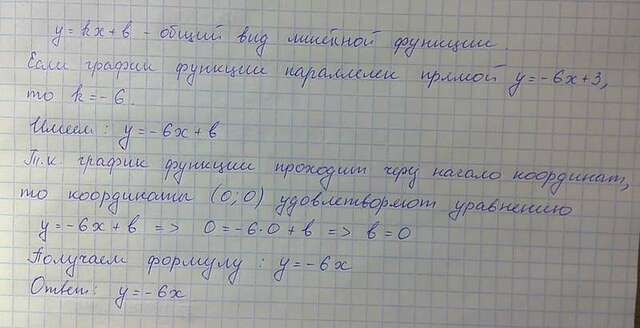 y = kx + b - общий вид линейной функции.
Если график функции параллелен прямой y = -6x + 3,
то k = -6.
Имеем: y = -6x + b
Т.к. график функции проходит через начало координат,
то координаты (0; 0) удовлетворяют уравнению
y = -6x + b => 0 = -6·0 + b => b = 0
Получаем формулу: y = -6x
Ответ: y = -6x